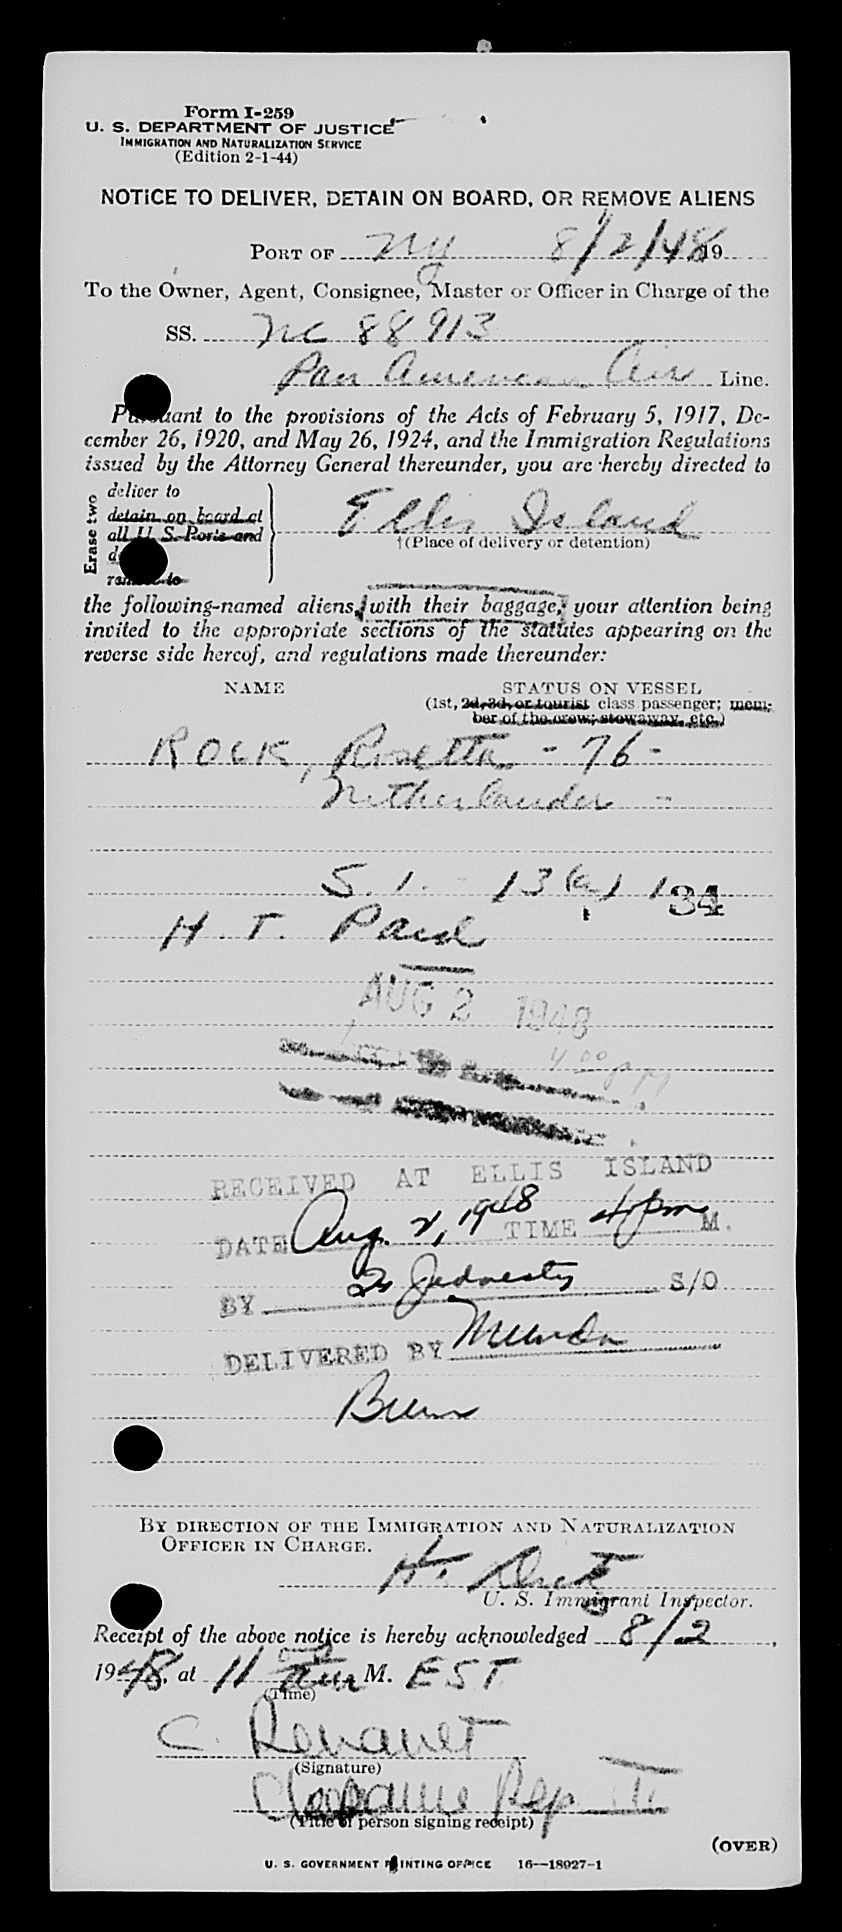 Form I-259
U. S. DEPARTMENT OF JUSTICE
IMMIGRATION AND NATURALIZATION SERVICE
(Edition 2-1-44)
NOTICE TO DELIVER, DETAIN ON BOARD, OR REMOVE ALIENS
PORT OF NY 8/2/48 19
To the Owner, Agent, Consignee, Master or Officer in Charge of the
SS. NC 88913
Pan American Air Line.
Pursuant to the provisions of the Acts of February 5, 1917, De-
cember 26, 1920, and May 26, 1924, and the Immigration Regulations
issued by the Attorney General thereunder, you are hereby directed to
Erase two
deliver to
detain on board at
all U. S. Ports and
remove to
Ellis Island
†(Place of delivery or detention)
the following-named aliens, with their baggage, your attention being
invited to the appropriate sections of the statutes appearing on the
reverse side hereof, and regulations made thereunder:
NAME STATUS ON VESSEL
(1st, 2d, 3d, or tourist class passenger; mem-
ber of the crew; stowaway, etc.)
ROCK, Rosetta - 76 -
Netherlander -
S. I. - 13 34
H. T. Paid
AUG 2 1948
4 00 PM
RECEIVED AT ELLIS ISLAND
DATE Aug. 2, 1948 TIME 4 pm M.
BY S/O
DELIVERED BY
BY DIRECTION OF THE IMMIGRATION AND NATURALIZATION
OFFICER IN CHARGE.
H.
U. S. Immigrant Inspector.
Receipt of the above notice is hereby acknowledged 8/2,
1948, at 11 am M. EST
(Time)
C.
(Signature)
Rep
(Title of person signing receipt)
(OVER)
U. S. GOVERNMENT PRINTING OFFICE 16—18927-1